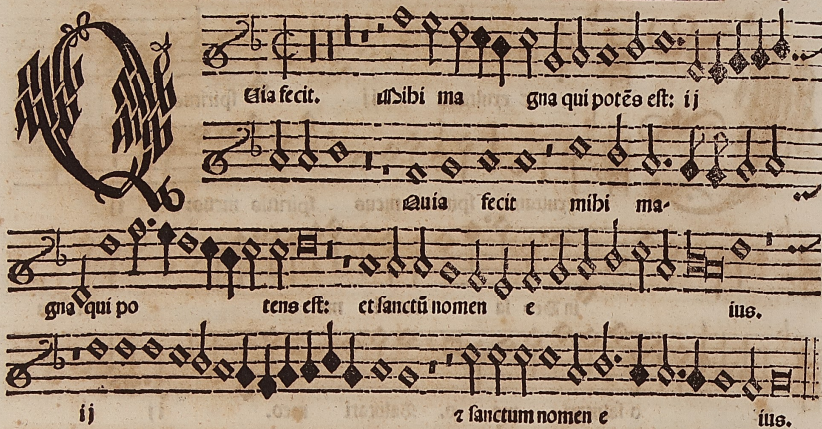 QUia fecit. Mihi ma gna qui potēs est: ij
Quia fecit mihi ma-
gna qui po tens est: et sanctū nomen e ius.
ij ⁊ sanctum nomen e ius.